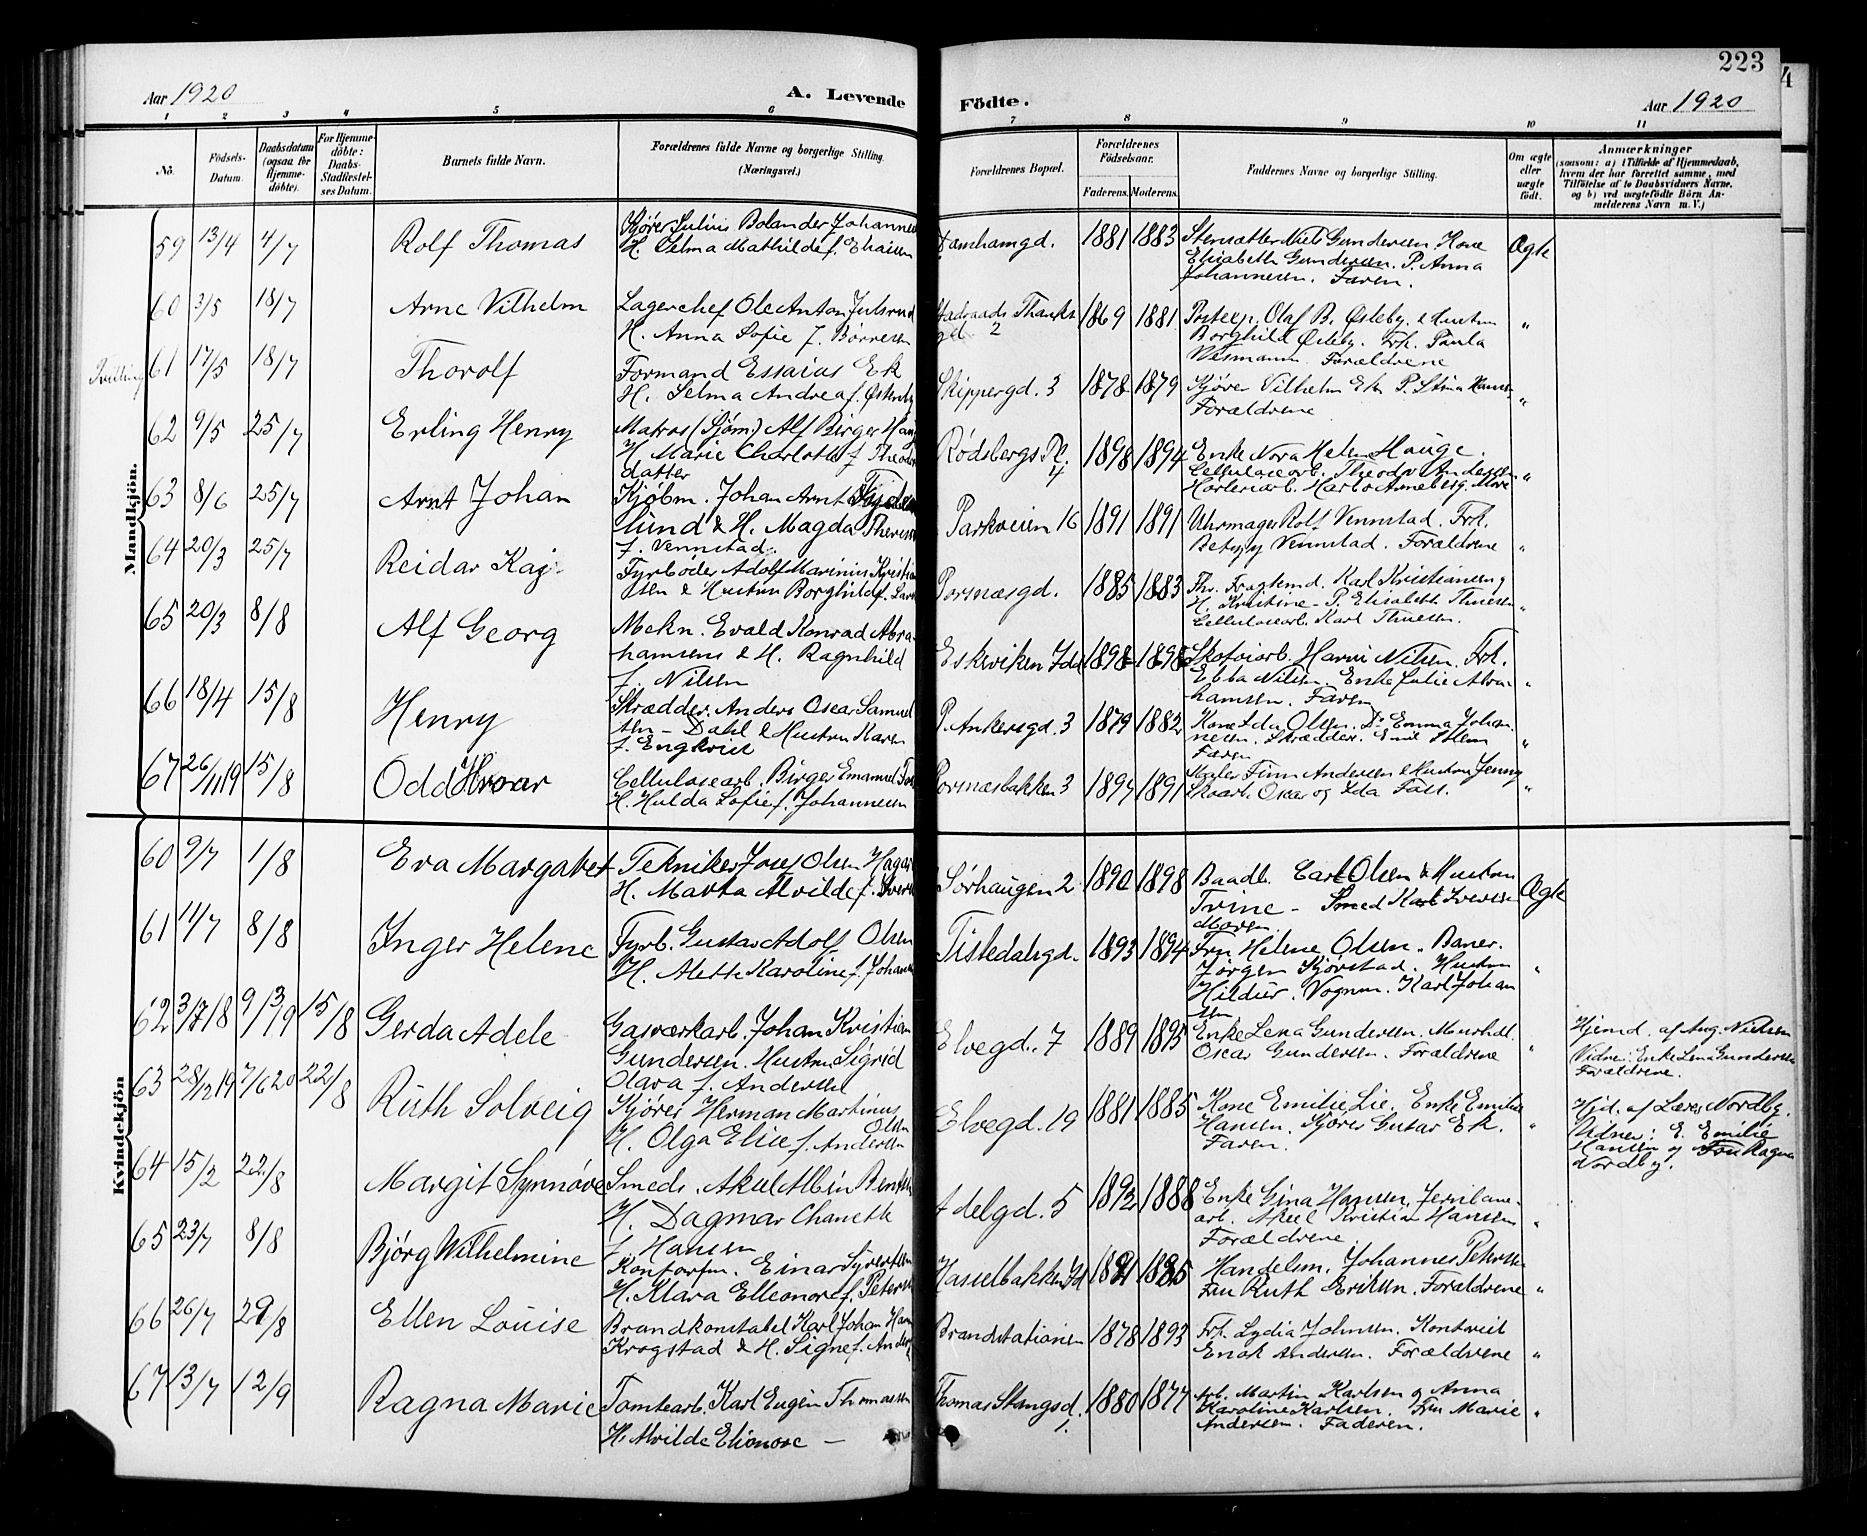 223
Aar 1920
A. Levende
Födte.
Aar 1920
1 2 3 4 5 6 7 8 9 10 11
No.
Födsels-
Datum.
Daabsdatum
(ogsaa for
Hjemme-
döbte).
For Hjemme-
döbte:
Daabs-
Stadfæstel-
ses Datum.
Barnets fulde Navn.
Forældrenes fulde Navne og borgerlige Stilling.
(Næringsvei.)
Forældrenes Bopæl.
Forældrenes
Födselsaar.
Faderens.
Moderens.
Faddernes Navne og borgerlige Stilling.
Om ægte
eller
uægte
födt.
Anmærkninger
(saasom: a) i Tilfælde af Hjemmedaab,
hvem der har forrettet samme, med
Tilföielse af to Daabsvidners Navne,
og b) ved uægtefödte Börn An-
melderens Navn m. V.)
Mandkjön.
59 13/4 4/7
Rolf Thomas
Kjører Julius Bolander Johannes
1881 1883
Stensætter Niels Gundersen. Kone
Elisabeth Gundersen. P. Anna
Johannesen. Faren.
Ægte
60 3/5 18/7
Arne Vilhelm
Lagerchef Ole Anton Julsrud
H. Anna Sofie f. Børresen
2
1869 1881
Olaf B. Østeby.
Borghild Østeby. Frk. Paula
Forældrene
"
61 17/5 18/7
Thorolf
Formand Essaias Ek
H. Selma Andrea f.
Skippergd. 3
1878 1879
Kjører Vilhelm Ek P.
Forældrene
"
62 9/5 25/7
Erling Henry
Matros (Sjøm.) Alf Birger Haug
H. Marie Charlotte f. Theodor
datter
Rødsbergs Pl.
4
1898 1894
Enke Nora Helen Hauge.
Cellulosearb. Theodor Andersen
"
63 8/6 25/7
Arnt Johan
Kjøbm. Johan Arnt
lund & H. Magda Therese
f. Vennstad.
Parkveien 16
1891 1891
Uhrmager Rolf Vennstad. Frk.
Betzy Vennstad. Forældrene
"
64 20/3 25/7
Reidar Kaj
Fyrbøder Adolf Marinius Kristian
sen & Hustru Borghild f.
Porsnæsgd.
1885 1883
Karl Kristiansen og
H. Kristine - P. Elisabeth Thuesen
Cellulosearb. Karl Thuesen.
"
65 20/3 8/8
Alf Georg
Mekn. Evald Konrad Abra-
hamsens & H. Ragnhild
f. Nilsen
Eskeviken Idd
1898 1898
Skotøiarb. Nilsen. Frk.
Ebba Nilsen. Enke Julie Abra-
hamsen. Faren
"
66 18/4 15/8
Henry
Skrædder. Anders Oscar Samuel
sen - Dahl & Hustru Karen
f. Engkvist
P. Ankersgd. 3
1879 1882
Kone Ida Olsen. Do Emma Johan
nesen. Skrædder. Emil
Faren
"
67 26/11 19 15/8
Odd Hroar
Cellulosearb. Birger Emanuel
H. Hulda Sofie f. Johannesen
Porsnæsbakken 3
1894 1891
Maler Finn Andersen & Hustru Jenny
Skoarb. Oscar og Ida Foss.
"
Kvindekjön
60 9/7 1/8
Eva Margaret
Tekniker Olsen
H. Marta Alvilde f. Iversen
Sørhaugen 2
1890 1898
Baadb. Carl Olsen & Hustru
Trine - Smed Karl Iversen
Moren
Ægte
61 11/7 8/8
Inger Helene
Fyrb. Gustav Adolf Olsen
H. Alette Karoline f. Johans
Tistedalsgd.
1893 1894
Fru Helene Olsen. Baner.
Jørgen Kjørstad. Hustru
Hildur. Vognm. Karl Johan
sen
"
62 3/7 18 9/3 19 15/8
Gerda Adele
Gasværkarb. Johan Kristian
Gundersen. Hustru Sigrid
Olava f. Andersen
Elvegd. 7
1889 1895
Enke Lena Gundersen. Murhdl.
Oscar Gundersen. Forældrene
"
Hjemd. af Aug. Nielsen
Vidner: Enke Lena Gundersen
Forældrene.
63 28/12 19 7/6 20 22/8
Ruth Solveig
Kjører Herman Martinus
Olsen
H. Olga Elise f. Andersen
Elvegd. 19
1881 1885
Kone Emilie Lie. Enke Emilie
Hansen. Kjører Gustav Ek.
Faren.
"
Hjd. af Lærer Nordby.
Vidner: E. Emilie
Hansen og Fru Ragna
Nordby.
64 15/2 22/8
Margit Synnøve
Smeds. Aksel Albin
H. Dagmar Chanette
f. Hansen
Adelgd. 5
1892 1888
Enke Gina Hansen, Jernbane-
arb. Aksel Kristian Hansen
Forældrene
"
65 23/7 8/8
Bjørg Wilhelmine
Kontorfm. Einar Syvertsen
H. Klara Elleonore f. Petersen
Hasselbakken Idd
1881 1885
Handelsm. Johannes Petersen
Fru Ruth Eriksen. Forældrene
"
66 26/7 29/8
Ellen Louise
Brandkonstabel Karl Johan
Krogstad & H. Signe f.
Brandstationen
1878 1893
Frk. Lydia Johnsen.
Enok Andersen. Forældrene
"
67 13/7 12/9
Ragna Marie
Tomtearb. Karl Eugen Thomassen
H. Alvilde Elionore -
Thomas Stangsd.
1.
1880 1877
Arb. Martin Karlsen og Anna
Karoline Karlsen. Fru Marie
Andersen. Faderen.
"